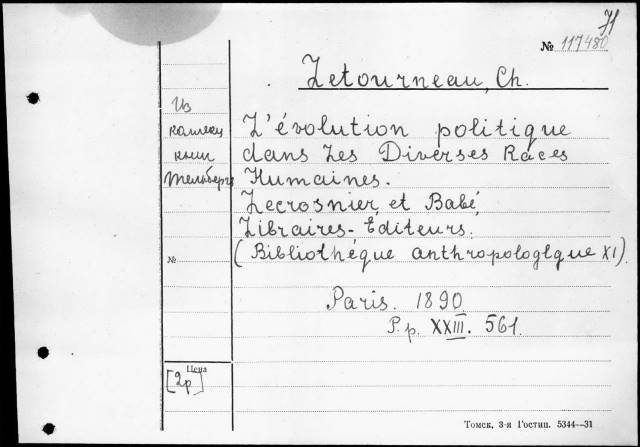 71
№ 117480
Letourneau, Ch.
Из
коллек
ции
тельберга
L'évolution politique
dans Les Diverses Races
Humaines.
Lecrosnier et Babé,
Libraires-Éditeurs.
№
(Bibliothéque anthropologlque XI).
Paris. 1890
P.p. XXIII. 561.
Цена
[2р]
Томск, 3-я Гостип. 5344—31